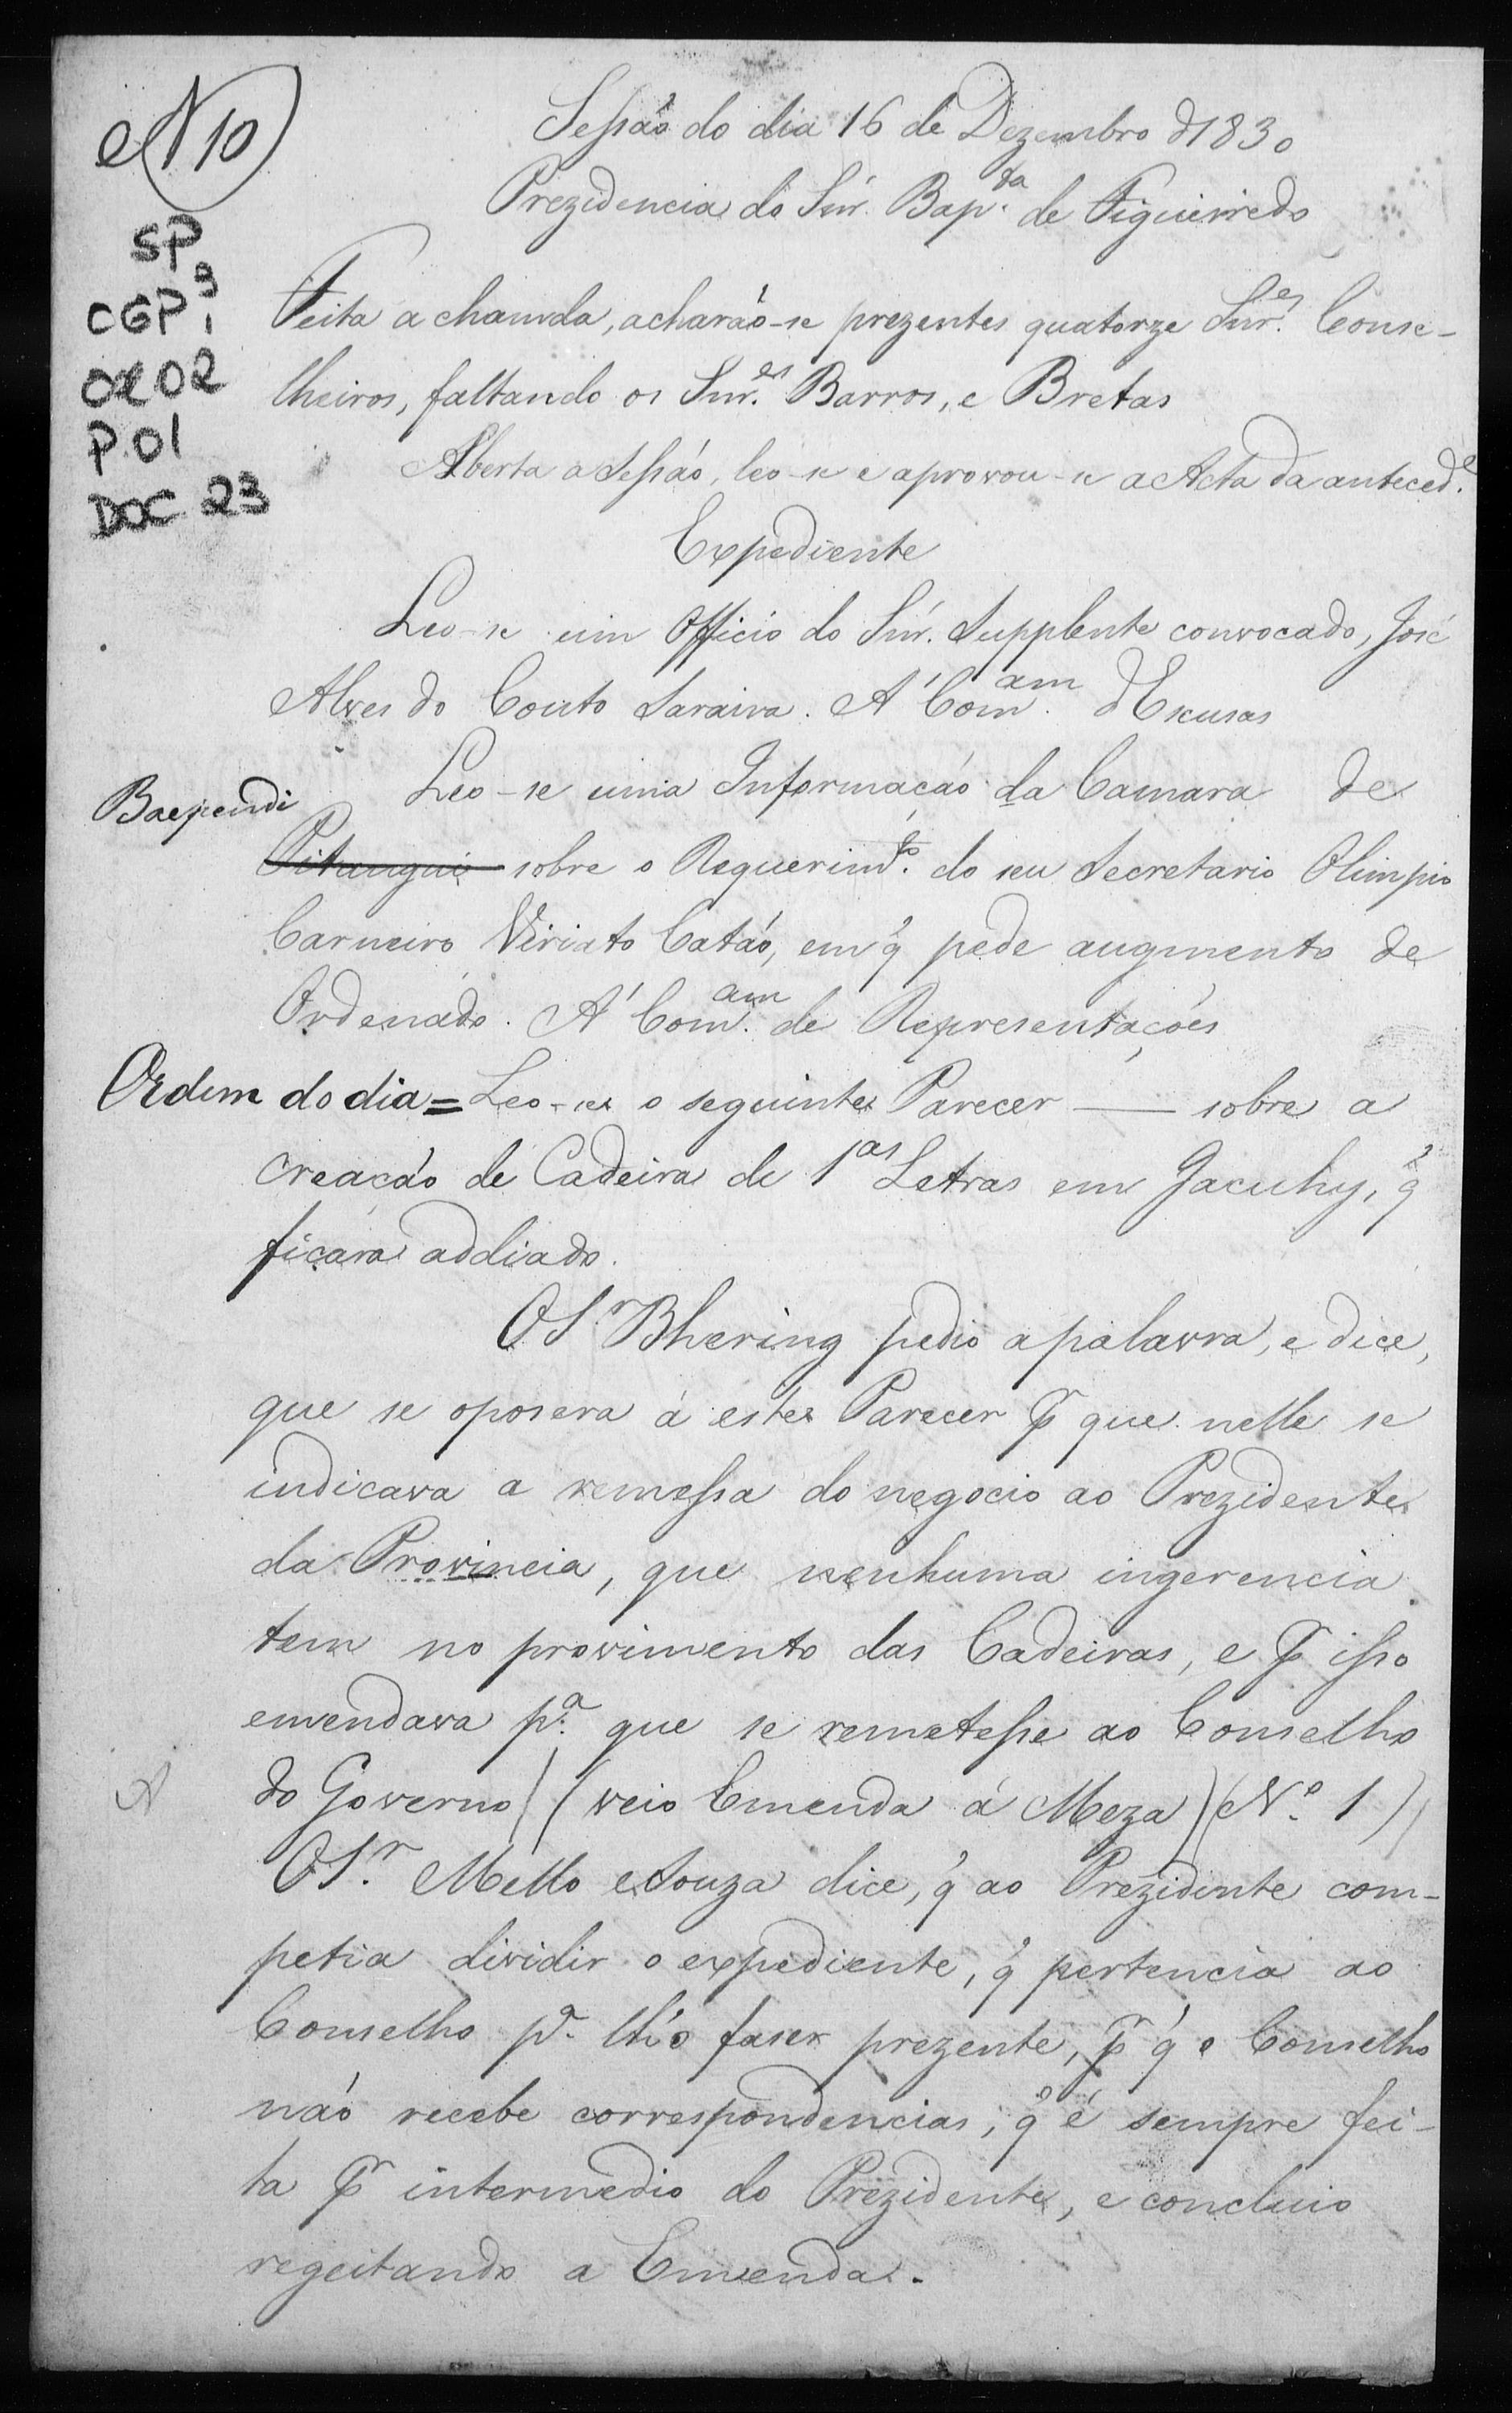 N 10
SP
CGP 9
1
0202
P.01
DOC. 23
Sessaõ do dia 16 de Dezembro d'1830
Prezidencia do Snr. Bap.ta de Figueiredo
Feita a chamda, acharaõ-se prezentes quatorze Snr.es Conse-
lheiros, faltando os Snr.es Barros, e Bretas
Aberta a Sessaõ, leo-se e aprovou-se a Acta da anteced.e
Expediente
Leo-se um Officio do Snr. Supplente convocado, José
Alves do Couto Saraiva. A' Com.am d'Escusas
Leo-se uma Informaçaõ da Camara de
Baependi
Pitangui sobre o Requerim.to do seu Secretario Olimpio
Carneiro Viriato Cataõ, em q̃ pede augmento de
Ordenado. A' Com.am de Representações
Ordem do dia = Leo-se o seguinte Parecer — sobre a
creaçaõ de Cadeira de 1.as Letras em Jacuhy, q̃
ficara addiado.
O S.r Bhering pedio a palavra, e dice,
que se oposera á este Parecer pr que nelle se
indicava a remessa do negocio ao Prezidente
da Provincia, que nenhuma ingerencia
tem no provimento das Cadeiras, e pr isso
emendava p.a que se remetesse ao Conselho
do Governo) (veio Emenda á Meza) (N.o 1)
A
O S.r Mello e Souza dice, q̃ ao Prezidente com-
petia dividir o expediente, q̃ pertencia ao
Conselho p.a lh'o faser prezente, pr q̃ o Conselho
naõ recebe correspondencias, q̃ é sempre fei-
ta pr intermedio do Prezidente, e concluio
regeitando a Emenda.